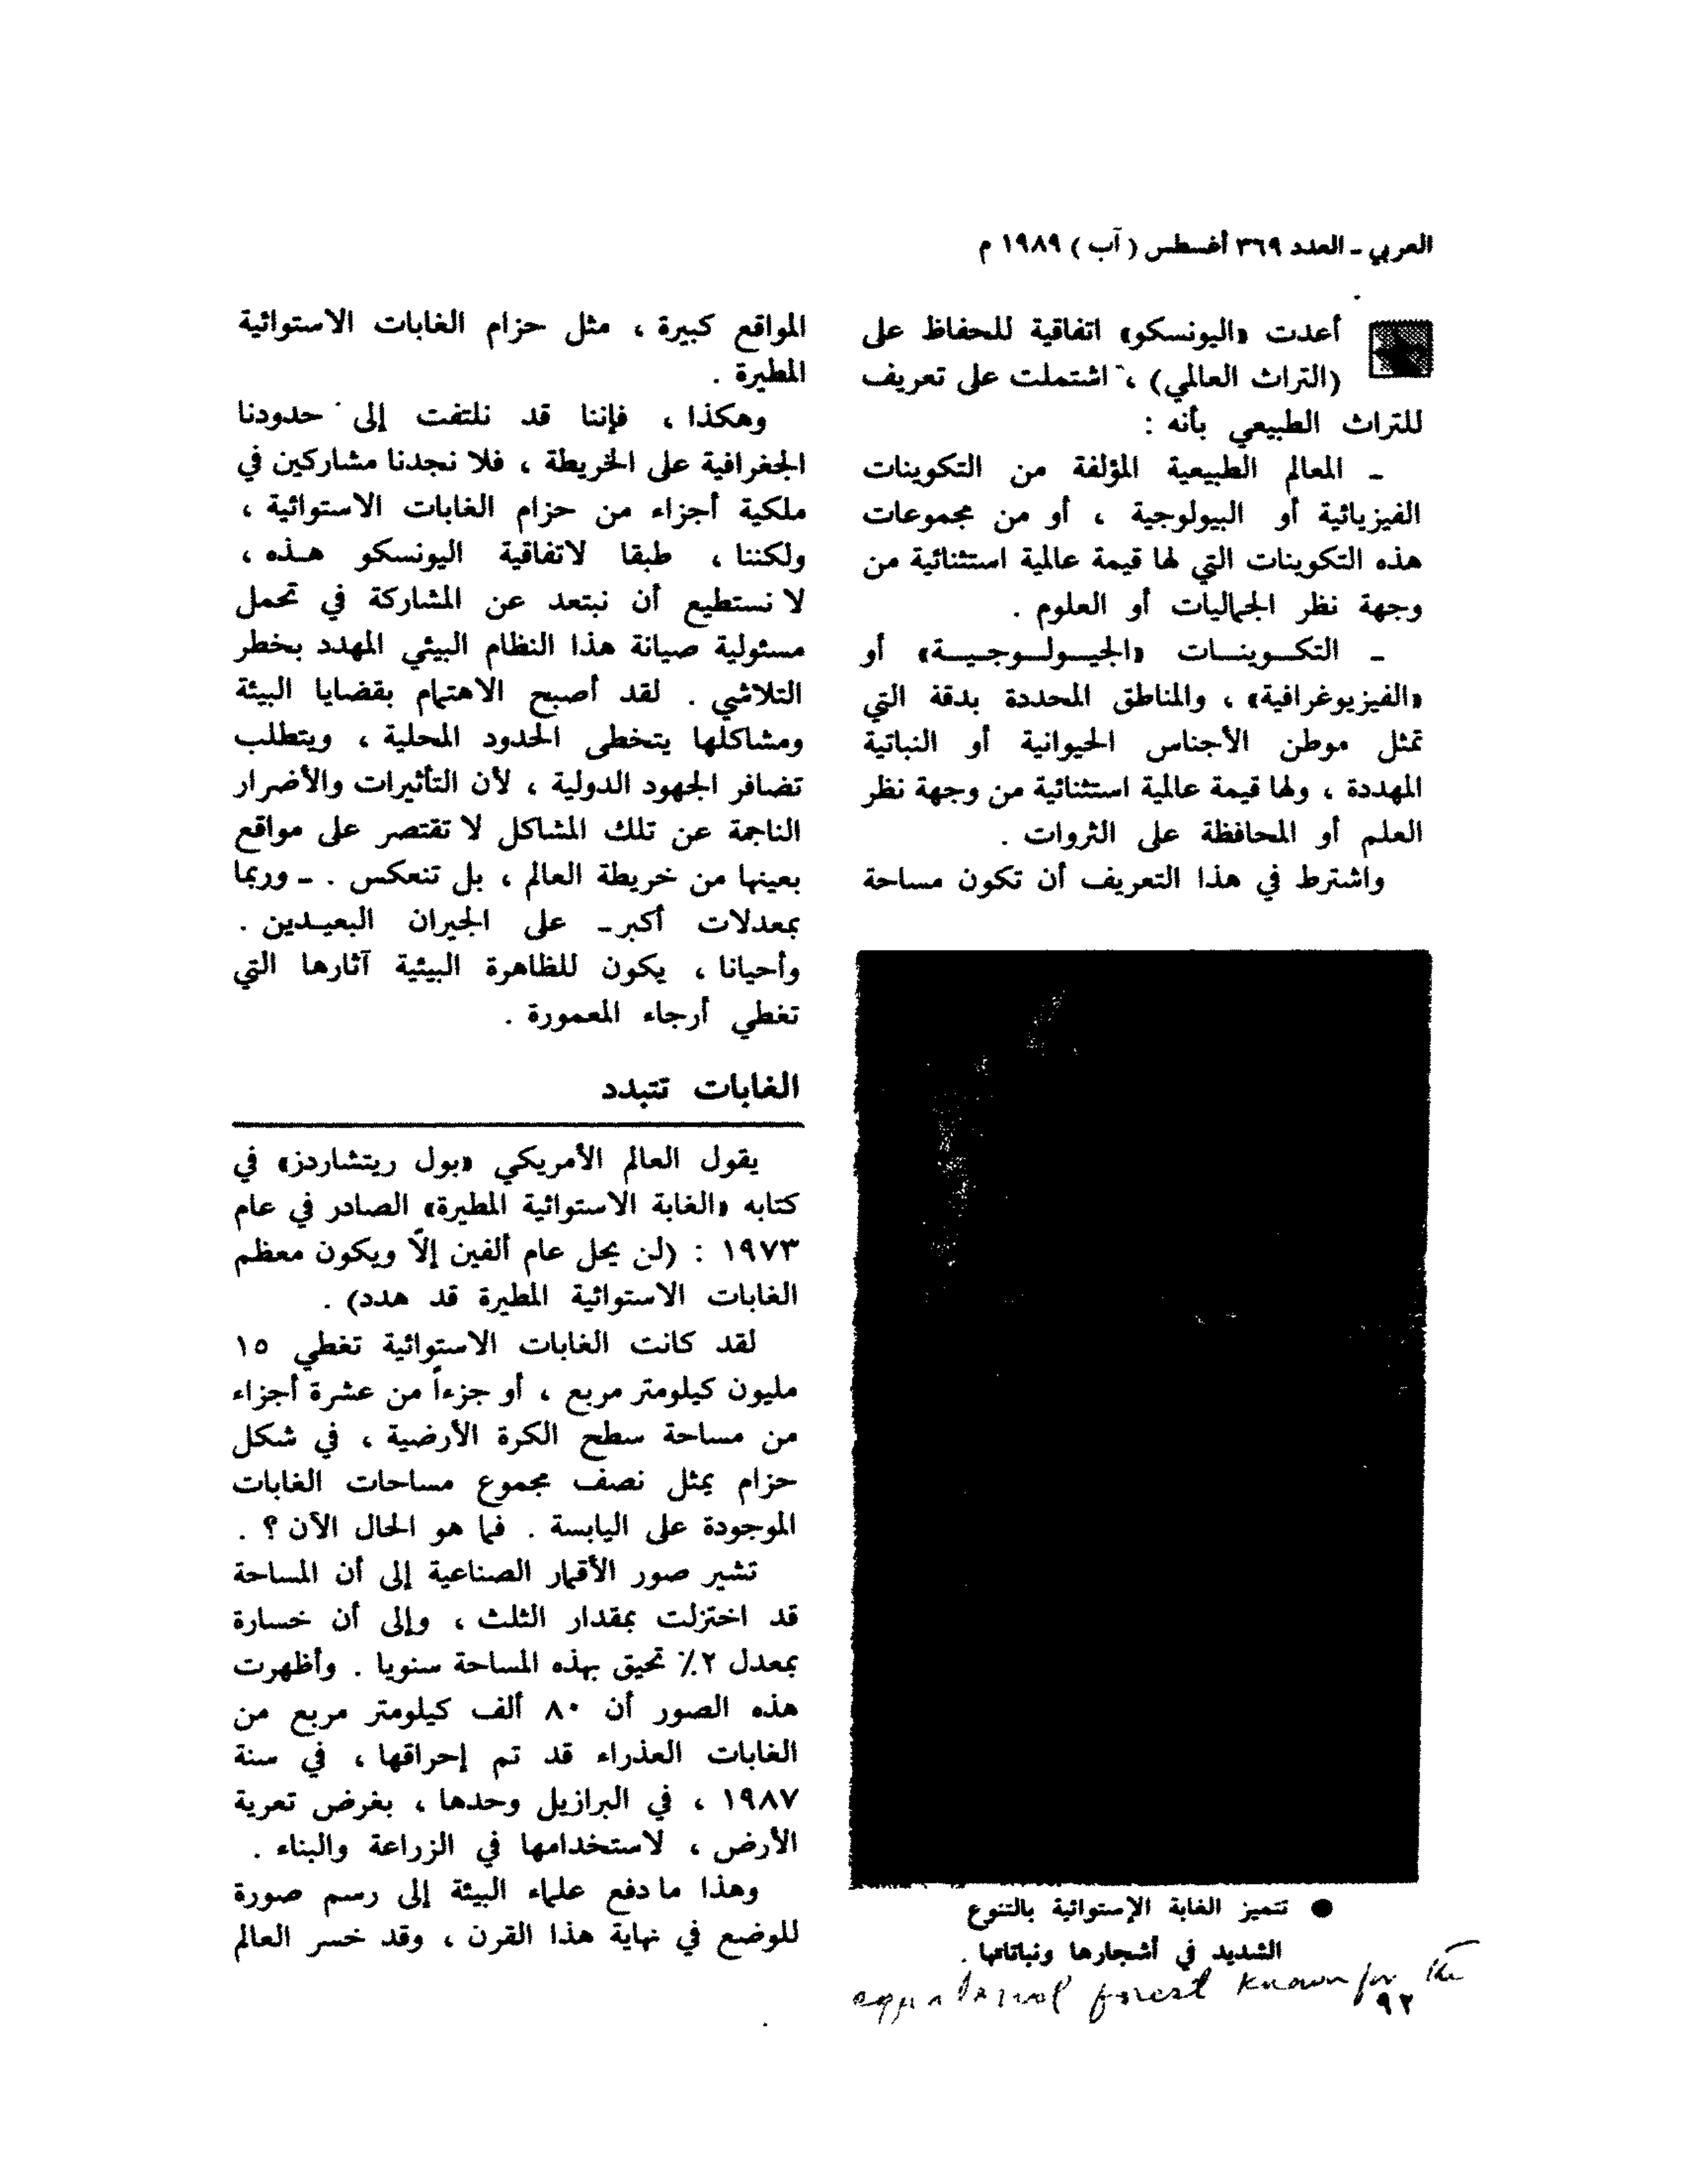 العربي ـ العدد ٣٦٩ أغسطس ( آب ) ١٩٨٩ م
أعدت «اليونسكو» اتفاقية للحفاظ على
(التراث العالمي) ، اشتملت على تعريف
للتراث الطبيعي بأنه :
ـ المعالم الطبيعية المؤلفة من التكوينات
الفيزيائية أو البيولوجية ، أو من مجموعات
هذه التكوينات التي لها قيمة عالمية استثنائية من
وجهة نظر الجماليات أو العلوم .
ـ التكـوينـات «الجيـولـوجـيـة» أو
«الفيزيوغرافية» ، والمناطق المحددة بدقة التي
تمثل موطن الأجناس الحيوانية أو النباتية
المهددة ، ولها قيمة عالمية استثنائية من وجهة نظر
العلم أو المحافظة على الثروات .
واشترط في هذا التعريف أن تكون مساحة
● تتميز الغابة الإستوائية بالتنوع
الشديد في أشجارها ونباتاتها .
equatorial forest known for the
٩٢
المواقع كبيرة ، مثل حزام الغابات الاستوائية
المطيرة .
وهكذا ، فإننا قد نلتفت إلى حدودنا
الجغرافية على الخريطة ، فلا نجدنا مشاركين في
ملكية أجزاء من حزام الغابات الاستوائية ،
ولكننا ، طبقا لاتفاقية اليونسكو هـذه ،
لا نستطيع أن نبتعد عن المشاركة في تحمل
مسئولية صيانة هذا النظام البيئي المهدد بخطر
التلاشي . لقد أصبح الاهتمام بقضايا البيئة
ومشاكلها يتخطى الحدود المحلية ، ويتطلب
تضافر الجهود الدولية ، لأن التأثيرات والأضرار
الناجمة عن تلك المشاكل لا تقتصر على مواقع
بعينها من خريطة العالم ، بل تنعكس . ـ وربما
بمعدلات أكبر ـ على الجيران البعيـدين .
وأحيانا ، يكون للظاهرة البيئية آثارها التي
تغطي أرجاء المعمورة .
الغابات تتبدد
يقول العالم الأمريكي «بول ريتشاردز» في
كتابه «الغابة الاستوائية المطيرة» الصادر في عام
١٩٧٣ : (لن يحل عام ألفين إلّا ويكون معظم
الغابات الاستوائية المطيرة قد هدد) .
لقد كانت الغابات الاستوائية تغطي ١٥
مليون كيلومتر مربع ، أو جزءاً من عشرة أجزاء
من مساحة سطح الكرة الأرضية ، في شكل
حزام يمثل نصف مجموع مساحات الغابات
الموجودة على اليابسة . فما هو الحال الآن ؟ .
تشير صور الأقمار الصناعية إلى أن المساحة
قد اختزلت بمقدار الثلث ، وإلى أن خسارة
بمعدل ٢٪ تحيق بهذه المساحة سنويا . وأظهرت
هذه الصور أن ٨٠ ألف كيلومتر مربع من
الغابات العذراء قد تم إحراقها ، في سنة
١٩٨٧ ، في البرازيل وحدها ، بغرض تعرية
الأرض ، لاستخدامها في الزراعة والبناء .
وهذا ما دفع علماء البيئة إلى رسم صورة
للوضع في نهاية هذا القرن ، وقد خسر العالم